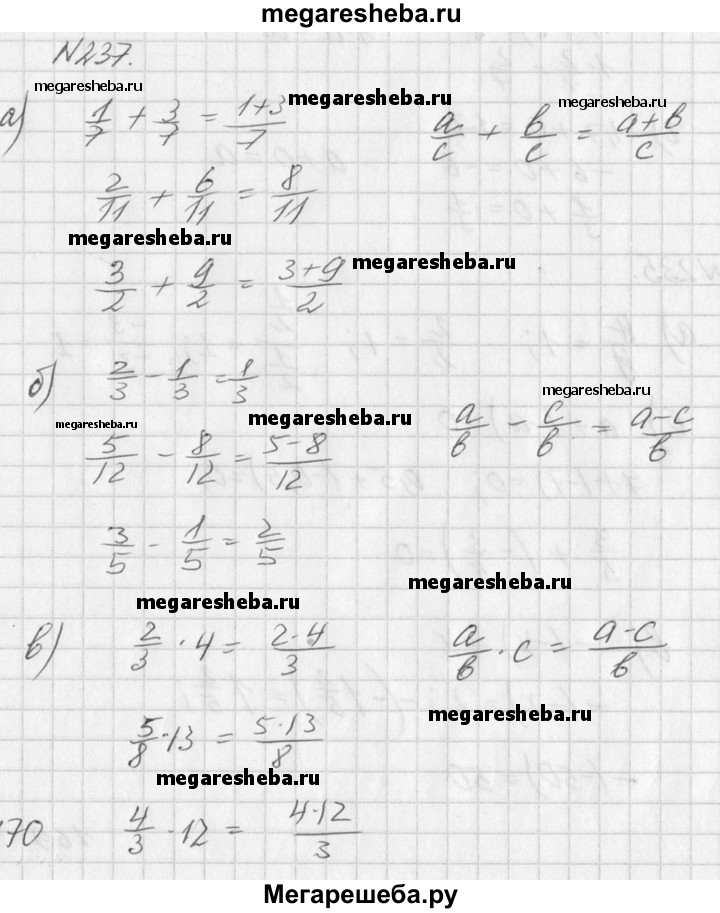 megaresheba.ru
N237.
megaresheba.ru
а) 1/7 + 3/7 = (1+3)/7 megaresheba.ru
megaresheba.ru
a/c + b/c = (a+b)/c
2/11 + 6/11 = 8/11
megaresheba.ru
3/2 + 9/2 = (3+9)/2 megaresheba.ru
б) 2/3 - 1/3 = 1/3
megaresheba.ru
megaresheba.ru
megaresheba.ru
5/12 - 8/12 = (5-8)/12
a/b - c/b = (a-c)/b
3/5 - 1/5 = 2/5
megaresheba.ru
megaresheba.ru
в) 2/3 · 4 = (2-4)/3
a/b · c = (a-c)/b
megaresheba.ru
5/8 · 13 = (5·13)/8
megaresheba.ru
70 4/3 · 12 = (4·12)/3
Мегарешеба.ру